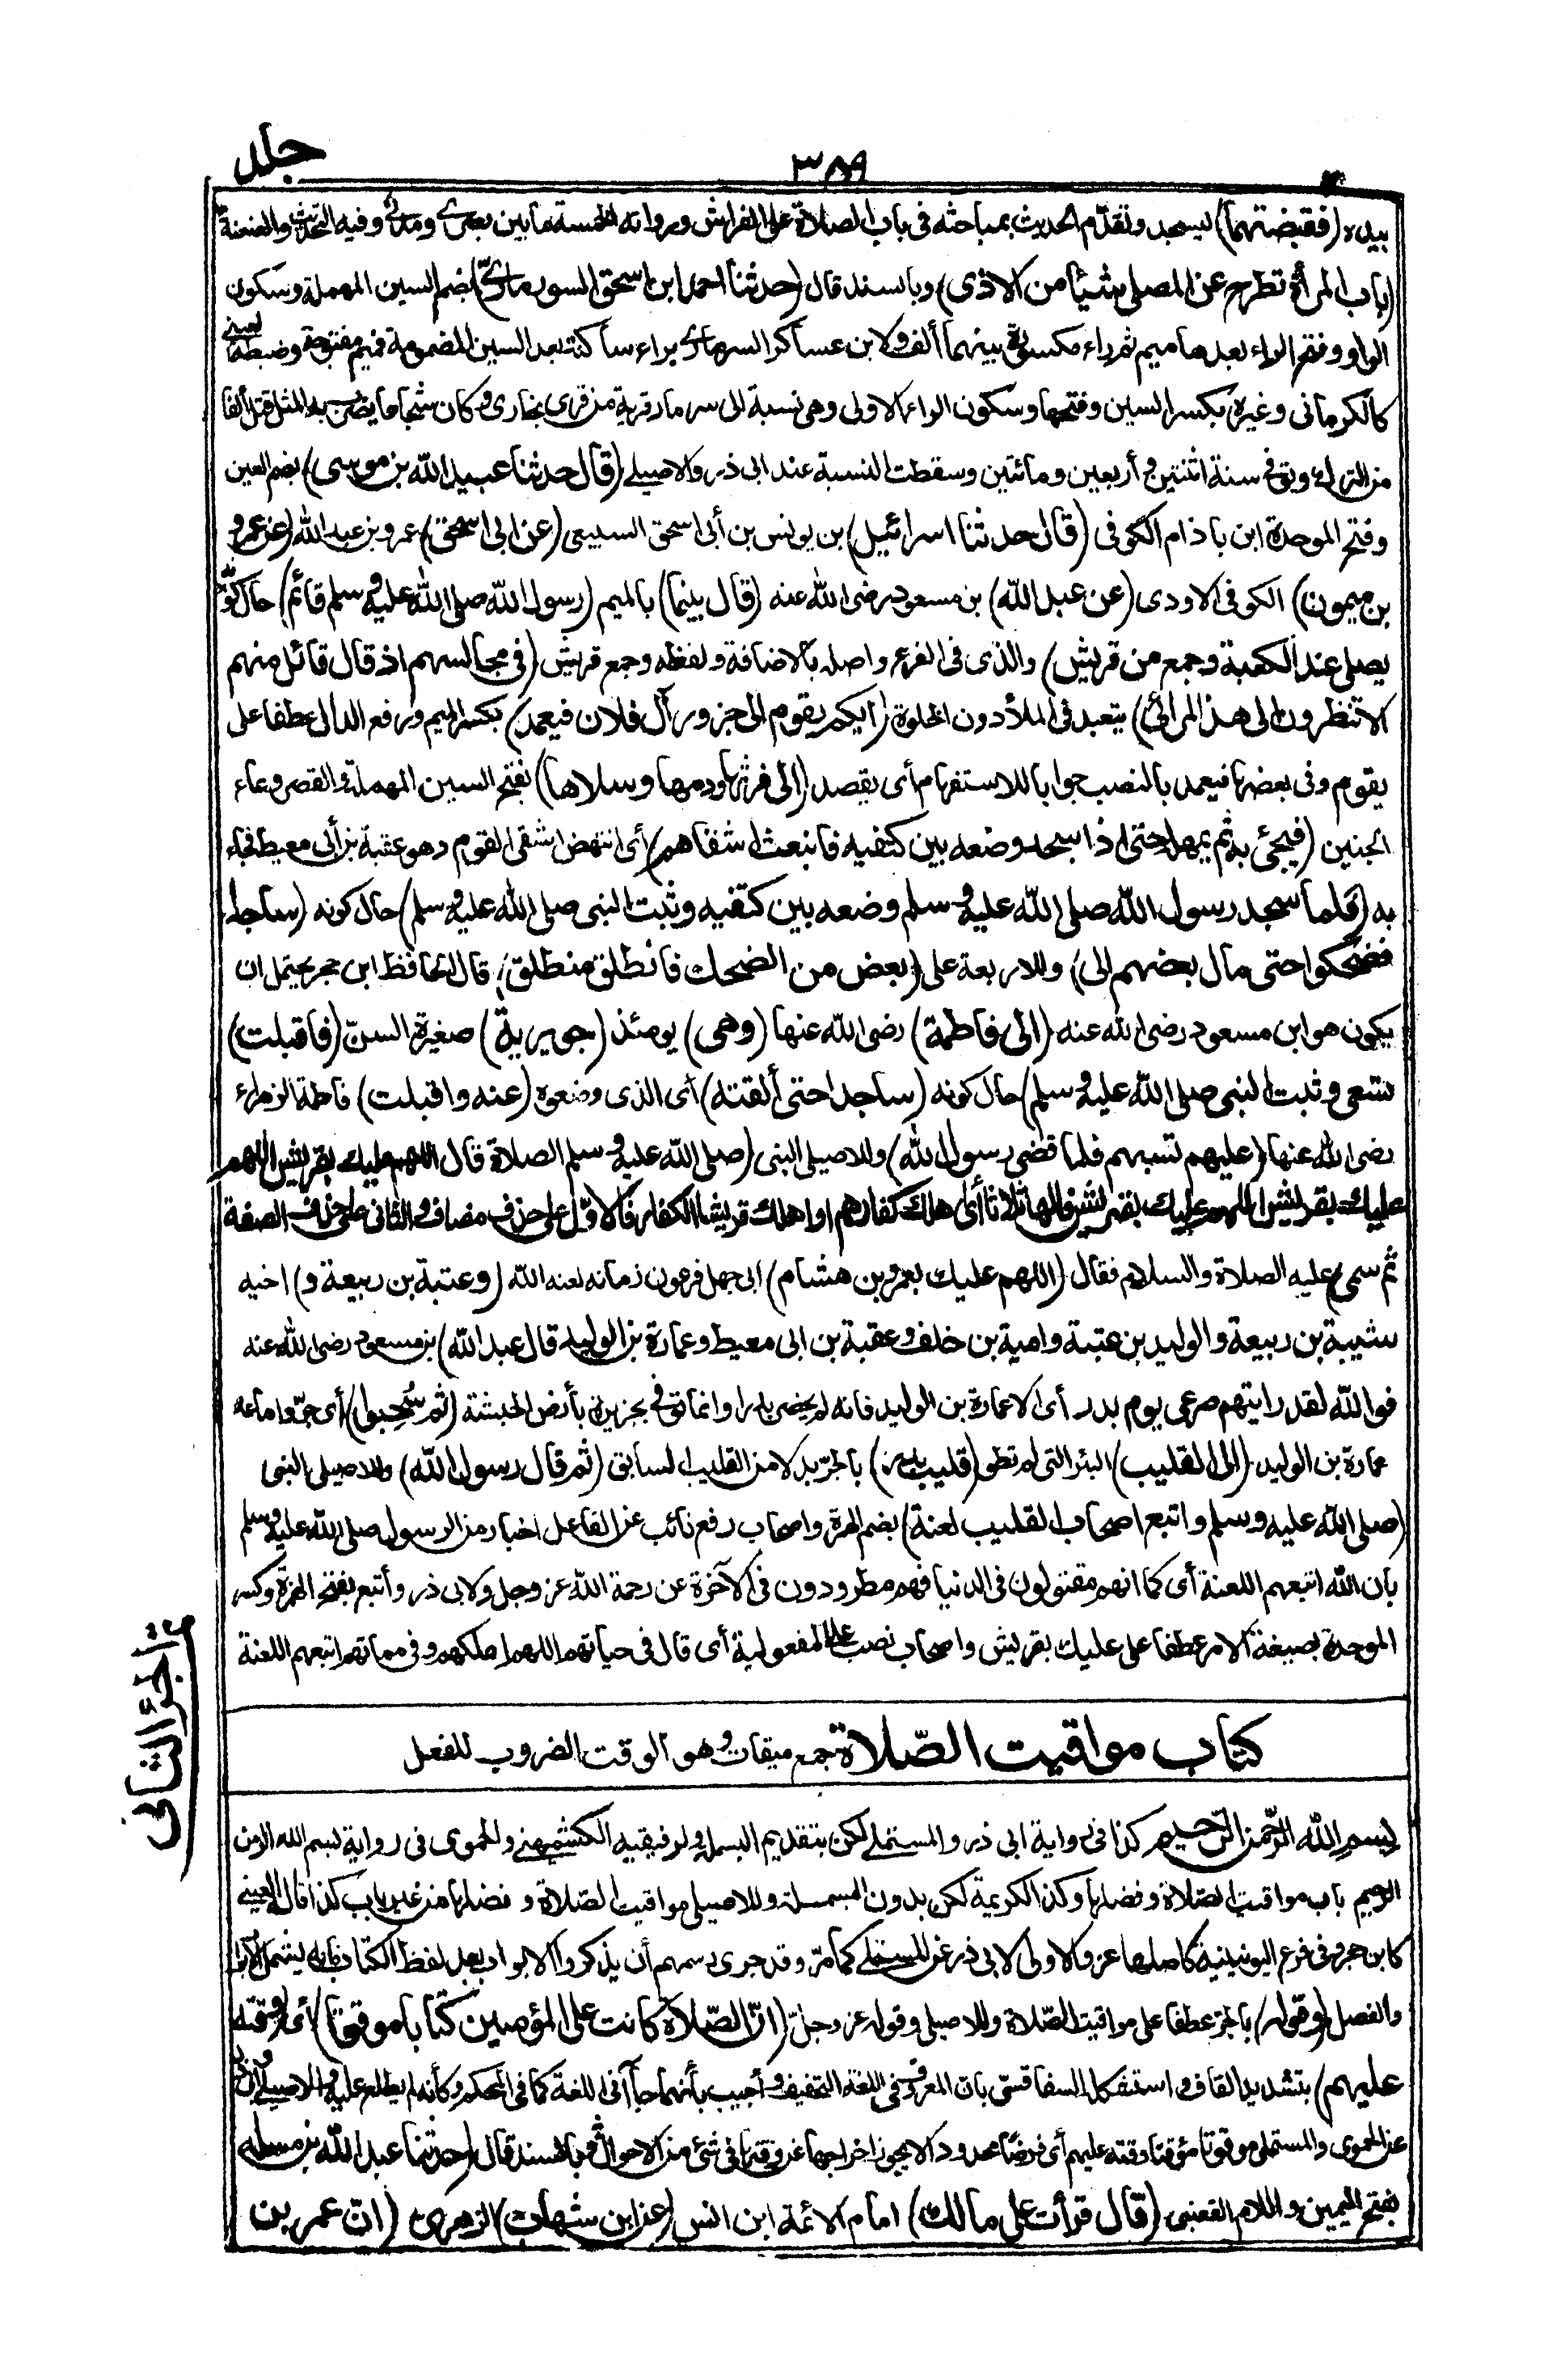 جلد
٣٨٩
بيده (فقبضتهما) ليسجد وتقدّم الحديث بمباحثه فى باب الصلاة على الفراش ورواته الخمسة ما بين بصرى ومدنى وفيه التحديث والعنعنة
(باب المرأة تطرح عن المصلى شيئا من الاذى) وبالسند قال (حدثنا احمد ابن اسحق السورمارىّ) بضم السين المهملة وسكون
الواو وفتح الراء بعدها ميم ثم راء مكسورة بينهما ألف ولابن عساكر السرمارى براء ساكنة بعد السين المضمومة فميم مفتوحة وضبطه العينى
كالكرمانى وغيره بكسر السين وفتحها وسكون الراء الاولى وهى نسبة الى سرمار قرية من قرى بخارى وكان شجاعا يضرب به المثل قتل ألفا
من الترك وتوفى سنة اثنتين وأربعين ومائتين وسقطت النسبة عند ابى ذر والاصيلى (قال حدثنا عبيد الله بن موسى) بضم العين
وفتح الموحدة ابن باذام الكوفى (قال حدثنا اسرائيل) بن يونس بن أبى اسحق السبيعى (عن ابى اسحق) عمرو بن عبد الله (عن عمرو
بن ميمون) الكوفى الاودى (عن عبد الله) بن مسعود رضى الله عنه (قال بينما) بالميم (رسول الله صلى الله عليه وسلم قائم) حال كونه
يصلى عند الكعبة وجمع من قريش) والذى فى الفرع واصله بالاضافة ولفظه وجمع قريش (فى مجالسهم اذ قال قائل منهم
الا تنظرون الى هذا المرائى) يتعبد فى الملأ دون الخلوة (أيكم يقوم الى جزور آل فلان فيعمد) بكسر الميم ورفع الدال عطفا على
يقوم وفى بعضها فيعمد بالنصب جوابا للاستفهام أى يقصد (الى فرثها ودمها وسلاها) بفتح السين المهملة والقصر وعاء
الجنين (فيجئ به ثم يمهله حتى اذا سجد وضعه بين كتفيه فانبعث اشقاهم) أى انتهض اشقى القوم وهو عقبة بن أبى معيط فجاء
به (فلما سجد رسول الله صلى الله عليه وسلم وضعه بين كتفيه وثبت النبى صلى الله عليه وسلم) حال كونه (ساجدا
فضحكوا حتى مال بعضهم الى) وللاربعة على (بعض من الضحك فانطلق منطلق) قال الحافظ ابن حجر يحتمل ان
يكون هو ابن مسعود رضى الله عنه (الى فاطمة) رضى الله عنها (وهى) يومئذ (جويرية) صغيرة السنّ (فاقبلت)
تسعى وثبت النبى صلى الله عليه وسلم) حال كونه (ساجدا حتى ألقته) أى الذى وضعوه (عنه واقبلت) فاطمة الزهراء
رضى الله عنها (عليهم تسبهم فلما قضى رسول الله) وللاصيلى النبى (صلى الله عليه وسلم الصلاة قال اللهم عليك بقريش اللهم
عليك بقريش اللهم عليك بقريش) قالها ثلاثا أى اهلك كفارهم او اهلك قريشا الكفار فالاوّل على حذف مضاف والثانى على حذف الصفة
ثم سمى) عليه الصلاة والسلام فقال (اللهم عليك بعمرو بن هشام) ابى جهل فرعون زمانه لعنه الله (وعتبة بن ربيعة و) اخيه
شيبة بن ربيعة والوليد بن عتبة وامية بن خلف وعقبة بن ابى معيط وعمارة بن الوليد قال عبد الله) بن مسعود رضى الله عنه
فوالله لقد رايتهم صرعى يوم بدر أى الا عمارة بن الوليد فانه لم يحضر بدرا وانما توفى بجزيرة بأرض الحبشة (ثم سُحبوا) أى جرّوا ما عدا
عمارة بن الوليد (الى القليب) البئر التى لم تطو (قليب بدر) بالجرّ بدلا من القليب السابق (ثم قال رسول الله) وللاصيلى النبى
(صلى الله عليه وسلم واتبع اصحاب القليب لعنة) بضم الهمزة واصحاب رفع نائب عن الفاعل اخبار من الرسول صلى الله عليه وسلم
بان الله اتبعهم اللعنة أى كما انهم مقتولون فى الدنيا فهم مطرودون فى الآخرة عن رحمة الله عز وجل ولابى ذر وأتبع بفتح الهمزة وكسر
الموحدة بصيغة الامر عطفا على عليك بقريش واصحاب نصب على المفعولية أى قال فى حياتهم اللهم اهلكهم وفى مماتهم اتبعهم اللعنة
كتاب مواقيت الصّلاة جمع ميقات وهو الوقت المضروب للفعل
بسم الله الرّحمن الرّحيم كذا فى رواية ابى ذر والمستملى لكن بتقديم البسملة ولرفيقيه الكشميهنى والحموى فى رواية بسم الله الرحمن
الرحيم باب مواقيت الصّلاة وفضلها وكذا لكريمة لكن بدون البسملة وللاصيلى مواقيت الصّلاة وفضلها من غير باب كذا قال العينى
كابن حجر وفى فرع اليونينية كاصلها عزو الاولى لابى ذر عن المستملى كما مرّ وقد جرى رسمهم أن يذكروا الابواب بعد لفظ الكتاب فانه يشتمل الابواب
والفصل (وقوله) بالجرّ عطفا على مواقيت الصّلاة وللاصيلى وقوله عز وجلّ (انّ الصّلاة كانت على المؤمنين كتابا موقوتا) أى (وقته
عليهم) بتشديد القاف واستشكل السفاقسىّ بان المعروف فى اللغة التخفيف وأجيب بأنهما جاآ فى اللغة كما فى المحكم وكأنه لم يطلع عليه وللاصيلى وأبى ذر
عن الحموى والمستملى موقوتا مؤقتا وقته عليهم أى فرضا محدودا لا يجوز اخراجها عن وقتها فى شئ من الاحوال وبالسند قال (حدثنا عبد الله بن مسلمة
بفتح الميمين واللام القعنبى (قال قرأت على مالك) امام الائمة ابن انس (عن ابن شهاب) الزهرى (انّ عمر بن
الجزء الثانى